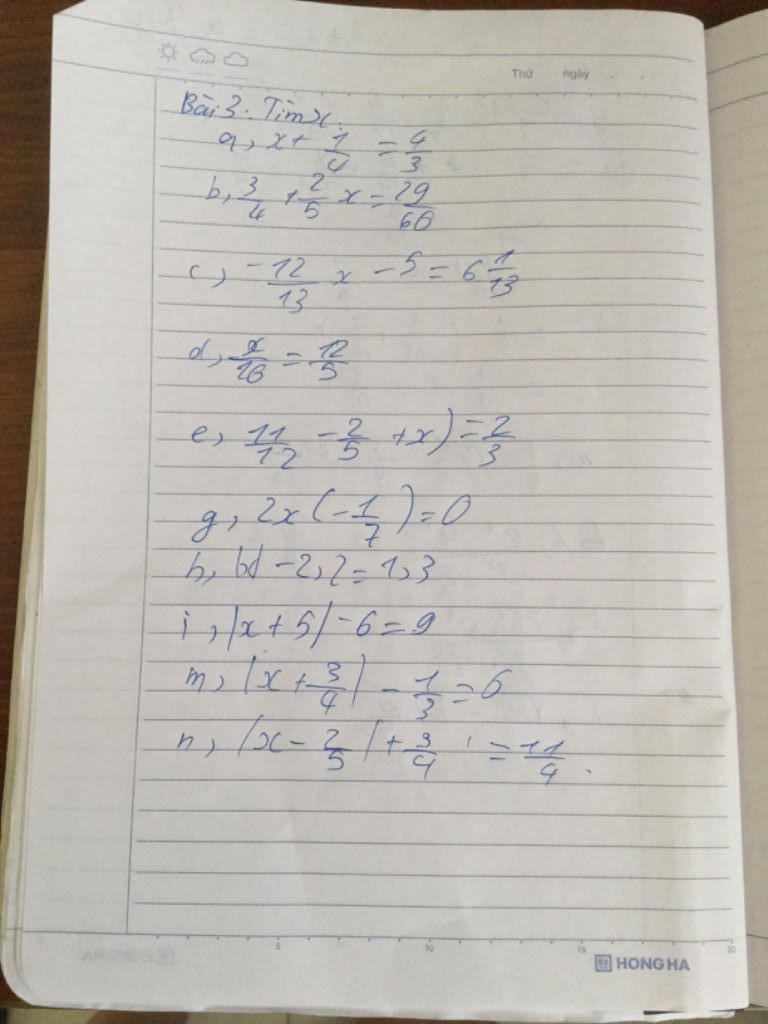 Thứ ngày
Bài 3. Tìm x.
a, x + 1/4 = 4/3
b, 3/4 + 2/5 x = 29/60
c, -12/13 x - 5 = 6 1/13
d, x/16 = 12/5
e, 11/12 - 2/5 + x) = 2/3
g, 2x(-1/7) = 0
h, |x| - 2,2 = 1,3
i, |x + 5| - 6 = 9
m, |x + 3/4| - 1/3 = 6
n, |x - 2/5| + 3/4 = 11/4.
5 10 15 20
HONG HA